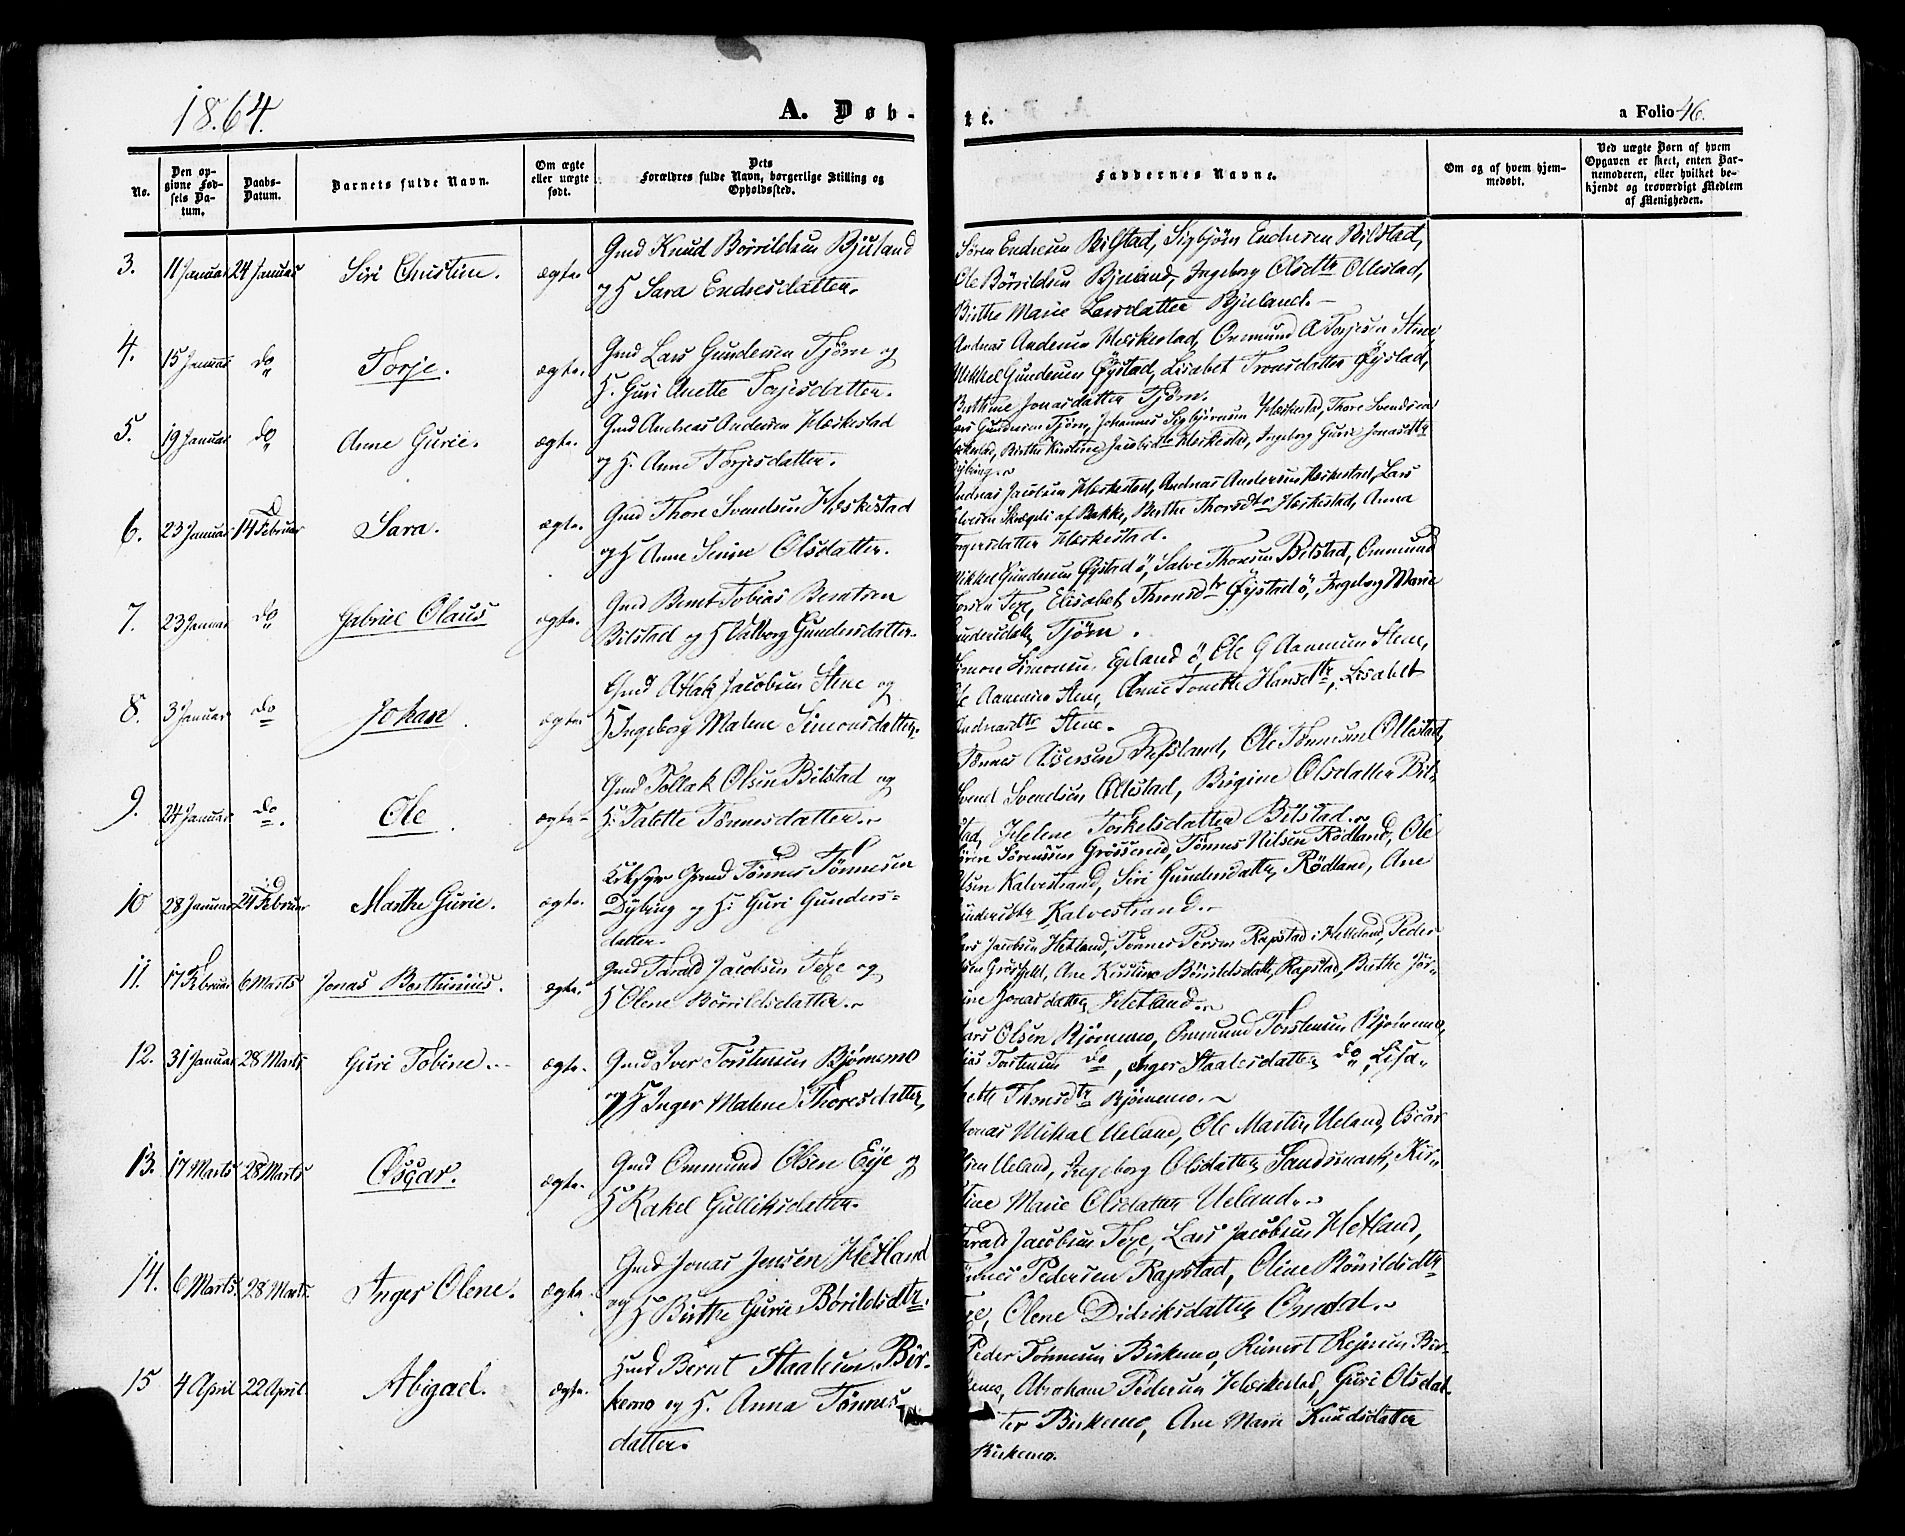 1864.
A. Døb-
te.
a Folio 46.
No.
Den op-
givne Fød-
sels Da-
tum.
Daabs-
Datum.
Barnets fulde Navn.
Om ægte
eller uægte
født.
Dets
Forældres fulde Navn, borgerlige Stilling og
Opholdssted.
Faddernes Navne.
Om og af hvem hjem-
medøbt.
Ved uægte Børn af hvem
Opgaven er skeet, enten Bar-
nemoderen, eller hvilket be-
kjendt og troværdigt Medlem
af Menigheden.
3. 11 Januar 24 Januar Siri Christine. ægte.
Gmd Knud Børrildsen Bjuland
og H Sara Endresdatter.
Søren Endresen Bilstad, Sigbjørn Endresen Bilstad,
Ole Børrildsen Bjuland, Ingeborg Olsdtr Ollestad,
Birthe Marie Larsdatter Bjuland.
4. 15 Januar do Torje. ægte.
Gmd Lars Gundersen Tjørn og
H. Guri Anette Torjesdatter.
Andreas Andersen Heskestad, Ommund A Torjesen Stene,
Mikkel Gundersen Øystad, Lisabet Tronsdatter Øystad,
Berthine Jonasdatter Tjørn.
5. 19 Januar do Anne Gurie. ægte.
Gmd Andreas Andersen Heskestad
og H. Anne Torjesdatter.
Lars Gundersen Tjørn, Johannes Sigbjørnsen Heskestad, Thore Svendsen
Heskestad, Birthe Kirstine Jacobsdtr Heskestad, Ingeborg Gurie Jonasdtr
Dybing.
6. 23 Januar 14 Februar Sara. ægte.
Gmd Thore Svendsen Heskestad
og H Anne Serine Olsdatter.
Andreas Jacobsen Heskestad, Andreas Andersen Heskestad, Lars
af Bakke, Birthe Thorsdtr Heskestad, Anna
Torgersdatter Heskestad.
7. 23 Januar do Gabriel Olaus ægte.
Gmd Bernt Tobias Berntsen
Bilstad og H Valborg Gundersdatter.
Mikkel Gundersen Øystad ö, Salve Thorsen Bilstad, Ommund
Larsen Texe, Elisabet Thronsdtr Øystad ö, Ingeborg Marie
Gundersdatter Tjørn.
8. 3 Januar do Johan. ægte
Gmd Aslak Jacobsen Stene og
H Ingeborg Malene Simonsdatter.
Simon Simonsen Egeland ö, Ole G Aanensen Stene,
Ole Aanensen Stene, Anne Tonette Hansdtr, Lisabet
Andreasdtr Stene.
9. 24 Januar do Ole. ægte
Gmd Tollak Olsen Bilstad og
H: Talette Tønnesdatter.
Tønnes Assersen Refsland, Ole Tønnesen Ollestad,
Svend Svendsen Ollestad, Birgine Olsdatter Bil-
stad, Helene Torkelsdatter Bilstad.
10 28 Januar 24 Februar Marthe Gurie. ægte.
Gmd Tønnes Tønnesen
Dybing og H: Guri Gunders-
datter.
Søren Sørensen Grøsseid, Tønnes Nilsen Rødland, Ole
Olsen Kalvestrand, Siri Gundersdatter Rødland, Ane
Gundersdtr Kalvestrand.
11. 17 Februar 6 Marts Jonas Berthinius. ægte
Gmd Tarald Jacobsen Texe og
H Olene Børrildsdatter.
Lars Jacobsen Hetland, Tønnes Persen Rapstad i Helleland, Peder
Ane Kirstine Børrildsdatter Rapstad, Birthe Jør-
ine Jonasdatter Hetland.
12. 31 Januar 28 Marts Guri Tobine. ægte.
Gmd Iver Torstensen Bjørnemo
og H Inger Malene Thoresdatter,
Lars Olsen Bjørnemo, Ommund Torstensen Bjørnemo,
Torstensen do, Inger Staalesdatter do, Lisa-
bette Thorsdtr Bjørnemo.
13. 17 Marts 28 Marts Oscar. ægte.
Gmd Ommund Olsen Eye og
H Rakel Gulliksdatter.
Jonas Mikal Ueland, Ole Martin Ueland, Oscar
Olsen Ueland, Ingeborg Olsdatter Sandsmark, Kir-
stine Marie Olsdatter Ueland.
14. 6 Marts 28 Marts. Inger Olene. ægte.
Gmd Jonas Jensen Hetland
og H Birthe Gurie Børrildsdtr.
Tarald Jacobsen Texe, Lars Jacobsen Hetland,
Tønnes Pedersen Rapstad, Oline Børrildsdtr
Texe, Olene Didriksdatter Omdal.
15 4 April 22 April Abigael. ægte.
Huusmd Bernt Staalesen Bir-
kemo og H. Anna Tønnes-
datter.
Peder Tønnesen Birkemo, Reinert Rejersen Bir-
kemo, Abraham Pedersen Heskestad, Guri Olsdat-
ter Birkemo, Ane Marie Knudsdatter
Birkemo.